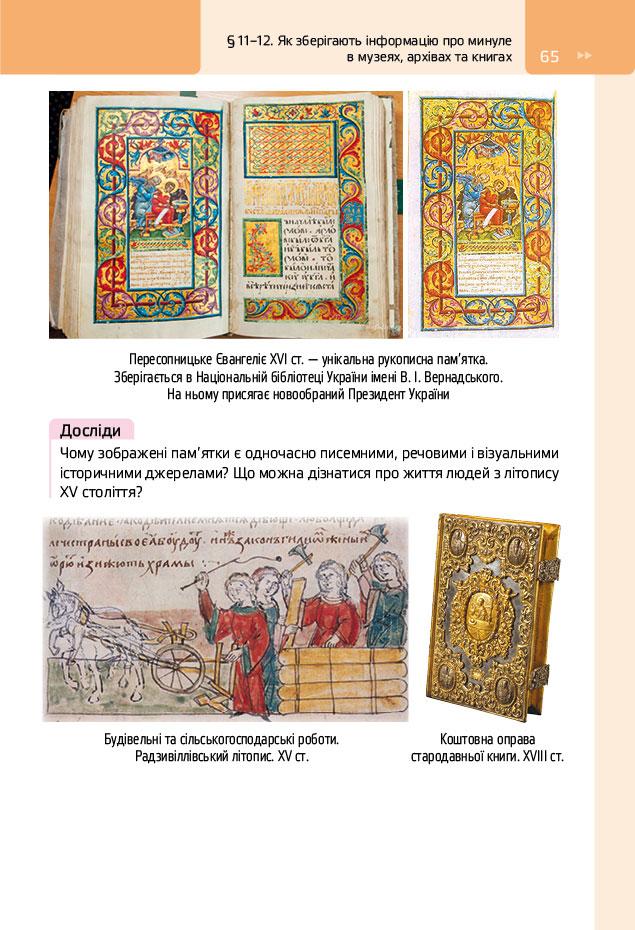 § 11–12. Як зберігають інформацію про минуле
в музеях, архівах та книгах
65
Пересопницьке Євангеліє XVI ст. — унікальна рукописна пам’ятка.
Зберігається в Національній бібліотеці України імені В. І. Вернадського.
На ньому присягає новообраний Президент України
Досліди
Чому зображені пам’ятки є одночасно писемними, речовими і візуальними
історичними джерелами? Що можна дізнатися про життя людей з літопису
XV століття?
Будівельні та сільськогосподарські роботи.
Радзивіллівський літопис. XV ст.
Коштовна оправа
стародавньої книги. XVIII ст.